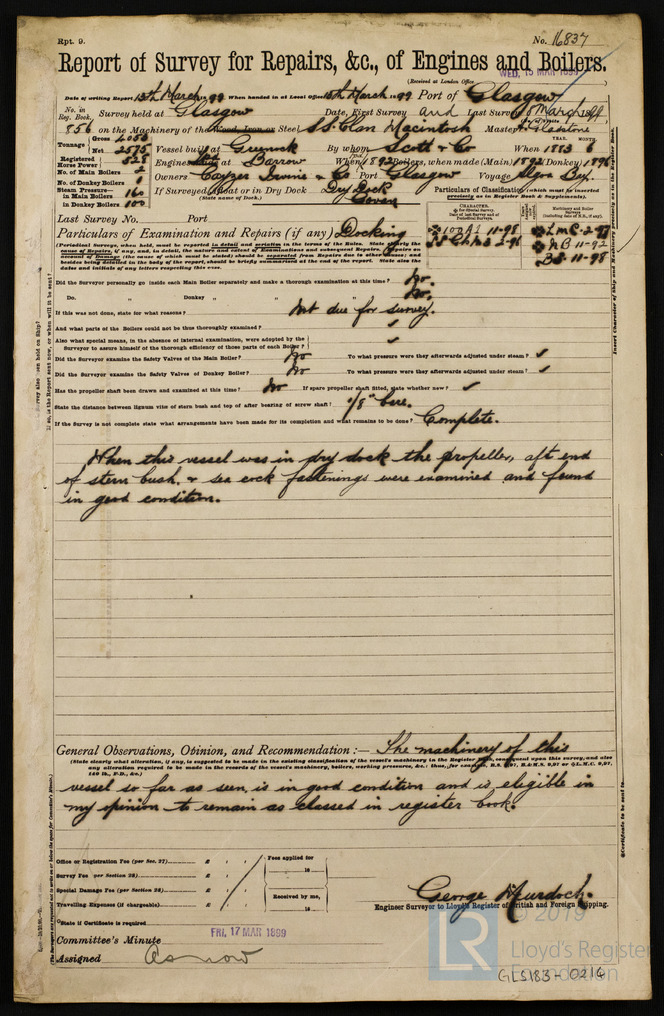 Rpt. 9.
No. 16837
Report of Survey for Repairs, &c., of Engines and Boilers.
(Received at London Office WED, 15 MAR 1899
Date of writing Report 15th March 1899 When handed in at Local Office 15th March 1899 Port of Glasgow
No. in Reg. Book. Survey held at Glasgow Date, First Survey and Last Survey 8 March 1899
856 on the Machinery of the Wood, Iron or Steel S.S. Clan Macintosh Master Gladstone
Tonnage Gross 4053
Net 2575 Vessel built at Greenock By whom Scott & Co When 1883 6
Registered Horse Power 528 Engines made at Barrow When 1892 Boilers, when made (Main) 1892 (Donkey) 1896
No. of Main Boilers 2 Owners Cayzer Irvine & Co Port Glasgow Voyage Algoa Bay.
No. of Donkey Boilers
Steam Pressure— in Main Boilers 160 If Surveyed Afloat or in Dry Dock Dry Dock
in Donkey Boilers 100 (State name of Dock.) Govan
Particulars of Classification (which must be inserted precisely as in Register Book & Supplements).
Last Survey No. Port
CHARACTER.
100A1 11-98
LMC. 2-97
NB 11-92
BS. 11-98
Particulars of Examination and Repairs (if any) Docking
(Periodical Surveys, when held, must be reported in detail and seriatim in the terms of the Rules. State clearly the
cause of Repairs, if any, and, in detail, the nature and extent of Examinations and subsequent Repairs. Repairs on
account of Damage (the cause of which must be stated) should be separated from Repairs due to other causes; and
besides being detailed in the body of the report, should be briefly summarised at the end of the report. State also the
dates and initials of any letters respecting this case.
Did the Surveyor personally go inside each Main Boiler separately and make a thorough examination at this time? No.
Do. „ Donkey „ „ „ „ No.
If this was not done, state for what reasons? Not due for survey.
And what parts of the Boilers could not be thus thoroughly examined? ✓
Also what special means, in the absence of internal examination, were adopted by the
Surveyor to assure himself of the thorough efficiency of those parts of each Boiler? ✓
Did the Surveyor examine the Safety Valves of the Main Boiler? No To what pressure were they afterwards adjusted under steam? ✓
Did the Surveyor examine the Safety Valves of Donkey Boiler? No To what pressure were they afterwards adjusted under steam? ✓
Has the propeller shaft been drawn and examined at this time? No If spare propeller shaft fitted, state whether new? ✓
State the distance between lignum vitæ of stern bush and top of after bearing of screw shaft? 1/8" bare.
If the Survey is not complete state what arrangements have been made for its completion and what remains to be done? Complete.
When this vessel was in dry dock the propeller, aft end
of stern bush, & sea cock fastenings were examined and found
in good condition.
General Observations, Opinion, and Recommendation :— The machinery of this
(State clearly what alteration, if any, is suggested to be made in the existing classification of the vessel's machinery in the Register Book, consequent upon this survey, and also
any alteration required to be made in the records of the vessel's machinery, boilers, working pressure, &c.; thus, for example, B.S. 9,97, B.&M.S. 9,97 or L.M.C. 9,97,
140 lb., F.D., &c.)
vessel so far as seen, is in good condition and is eligible in
my opinion to remain as classed in register book.
Office or Registration Fee (per Sec. 27) £
Survey Fee (per Section 28) £
Special Damage Fee (per Section 28) £
Travelling Expenses (if chargeable) £
Fees applied for
18
Received by me,
18
George Murdoch.
Engineer Surveyor to Lloyd's Register of British and Foreign Shipping.
State if Certificate is required
Committee's Minute FRI, 17 MAR 1899
Assigned As now
© 2019
LR
Lloyd's Register
Foundation
GLS183-0214